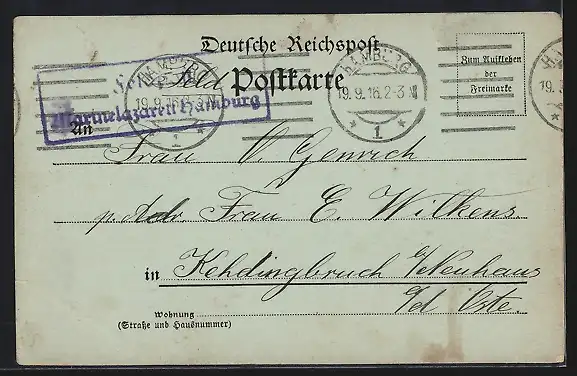 Deutsche Reichspost
Feld Postkarte
Zum Aufkleben
der
Freimarke
HAMBURG
19.9.16.2-3 N
* 1 *
HAMBURG
19.9.16
1
HA
19.
Marinelazarett Hamburg
An
Frau V. Genrich
p. Adr. Frau E. Wilkens
in Kehdingbruch b/Neuhaus
a/d Oste.
Wohnung
(Straße und Hausnummer)